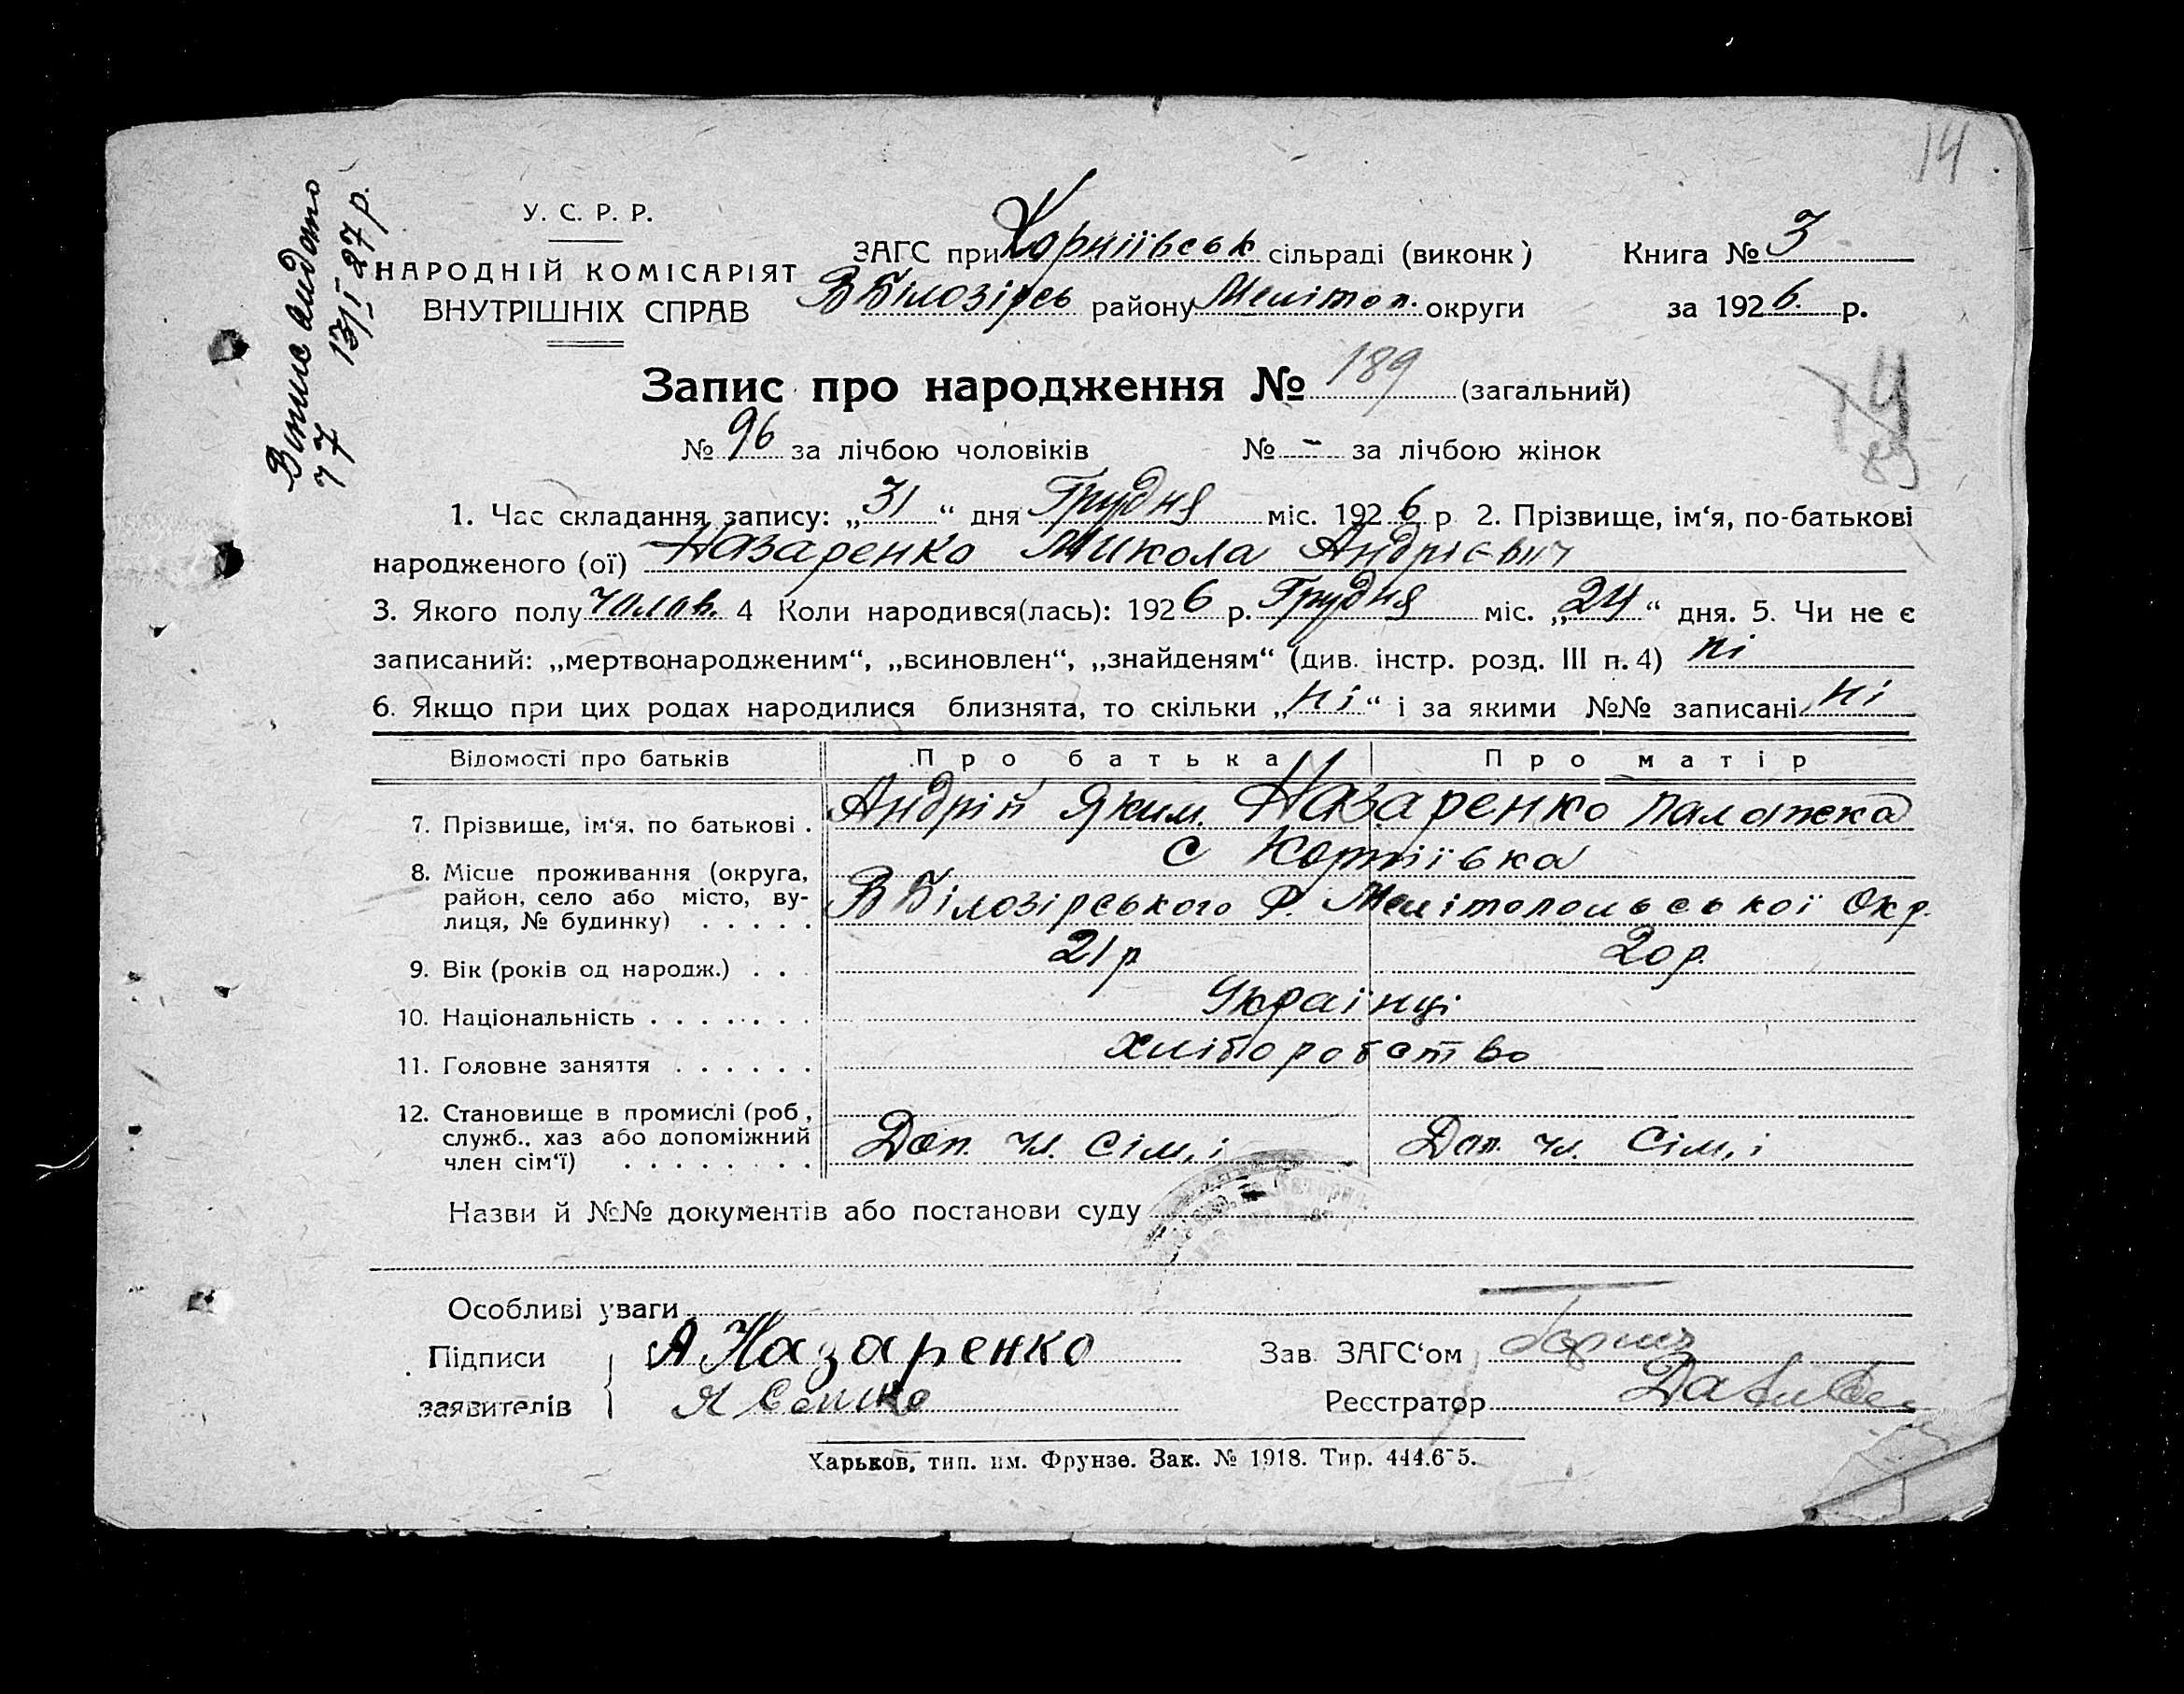 14
Випис видано
77 13/I 27 р.
У. С. Р. Р.
НАРОДНІЙ КОМІСАРІЯТ
ВНУТРІШНІХ СПРАВ
ЗАГС при Корніївськ сільраді (виконк)
В Білозірсь району Мелітоп. округи
Книга № 3
за 1926. р.
Запис про народження № 189 (загальний)
№ 96 за лічбою чоловіків № - за лічбою жінок
1. Час складання запису: „31“ дня Грудня міс. 1926 р 2. Прізвище, ім‘я, по-батькові
народженого (ої) Назаренко Микола Андрієвич
3. Якого полу чолов. 4 Коли народився(лась): 1926 р. Грудня міс. „24“ дня. 5. Чи не є
записаний: „мертвонародженим“, „всиновлен“, „знайденям“ (див. інстр. розд. III п. 4) ні
6. Якщо при цих родах народилися близнята, то скільки „ні“ і за якими №№ записані ні
Відомості про батьків Про батька Про матір
7. Прізвище, ім‘я, по батькові . Андрій Яким. Назаренко Палажка
8. Місце проживання (округа, с Корніївка
район, село або місто, ву- В Білозірського Р. Мелітопольської Окр.
лиця, № будинку) . . . . .
9. Вік (років од народж.) . . . 21 р 20 р.
10. Національність . . . . . . . Українці
11. Головне заняття . . . . . . Хліборобство
12. Становище в промислі (роб,
служб., хаз або допоміжний Доп. чл. Сім,ї Доп. чл. Сім,ї
член сім‘ї) . . . . . . . .
Назви й №№ документів або постанови суду
Особливі уваги
Підписи А Назаренко Зав ЗАГС‘ом
заявителів Реєстратор
Харьков, тип. им. Фрунзе. Зак. № 1918. Тир. 444.675.